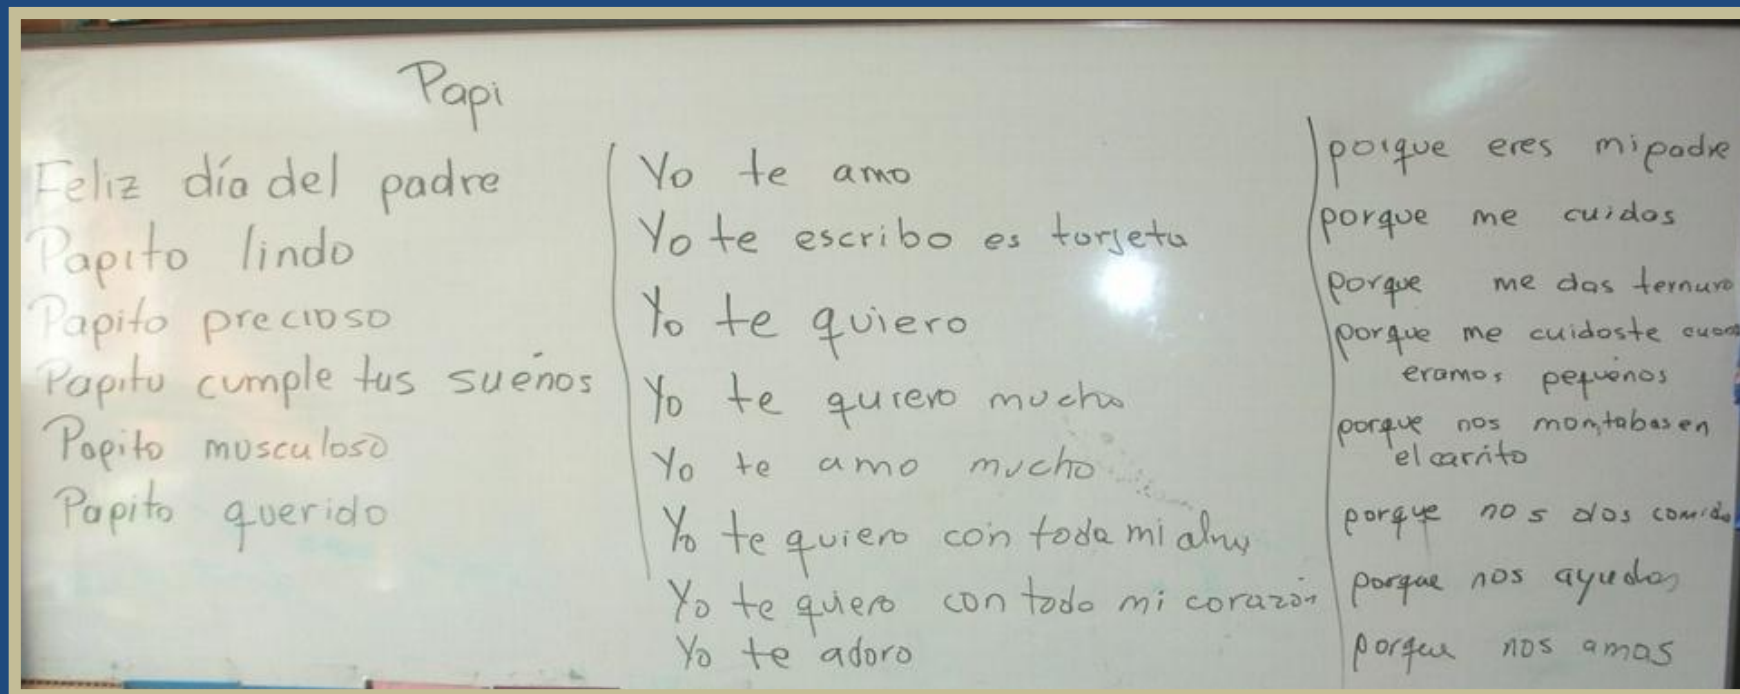 Papi
Feliz día del padre
Papito lindo
Papito precioso
Papito cumple tus sueños
Papito musculoso
Papito querido
Yo te amo
Yo te escribo es tarjeta
Yo te quiero
Yo te quiero mucho
Yo te amo mucho
Yo te quiero con toda mi alma
Yo te quiero con todo mi corazón
Yo te adoro
porque eres mi padre
porque me cuidas
porque me das ternura
porque me cuidaste
eramos pequeños
porque nos montabas en
el carrito
porque nos das comida
porque nos ayudas
porque nos amas